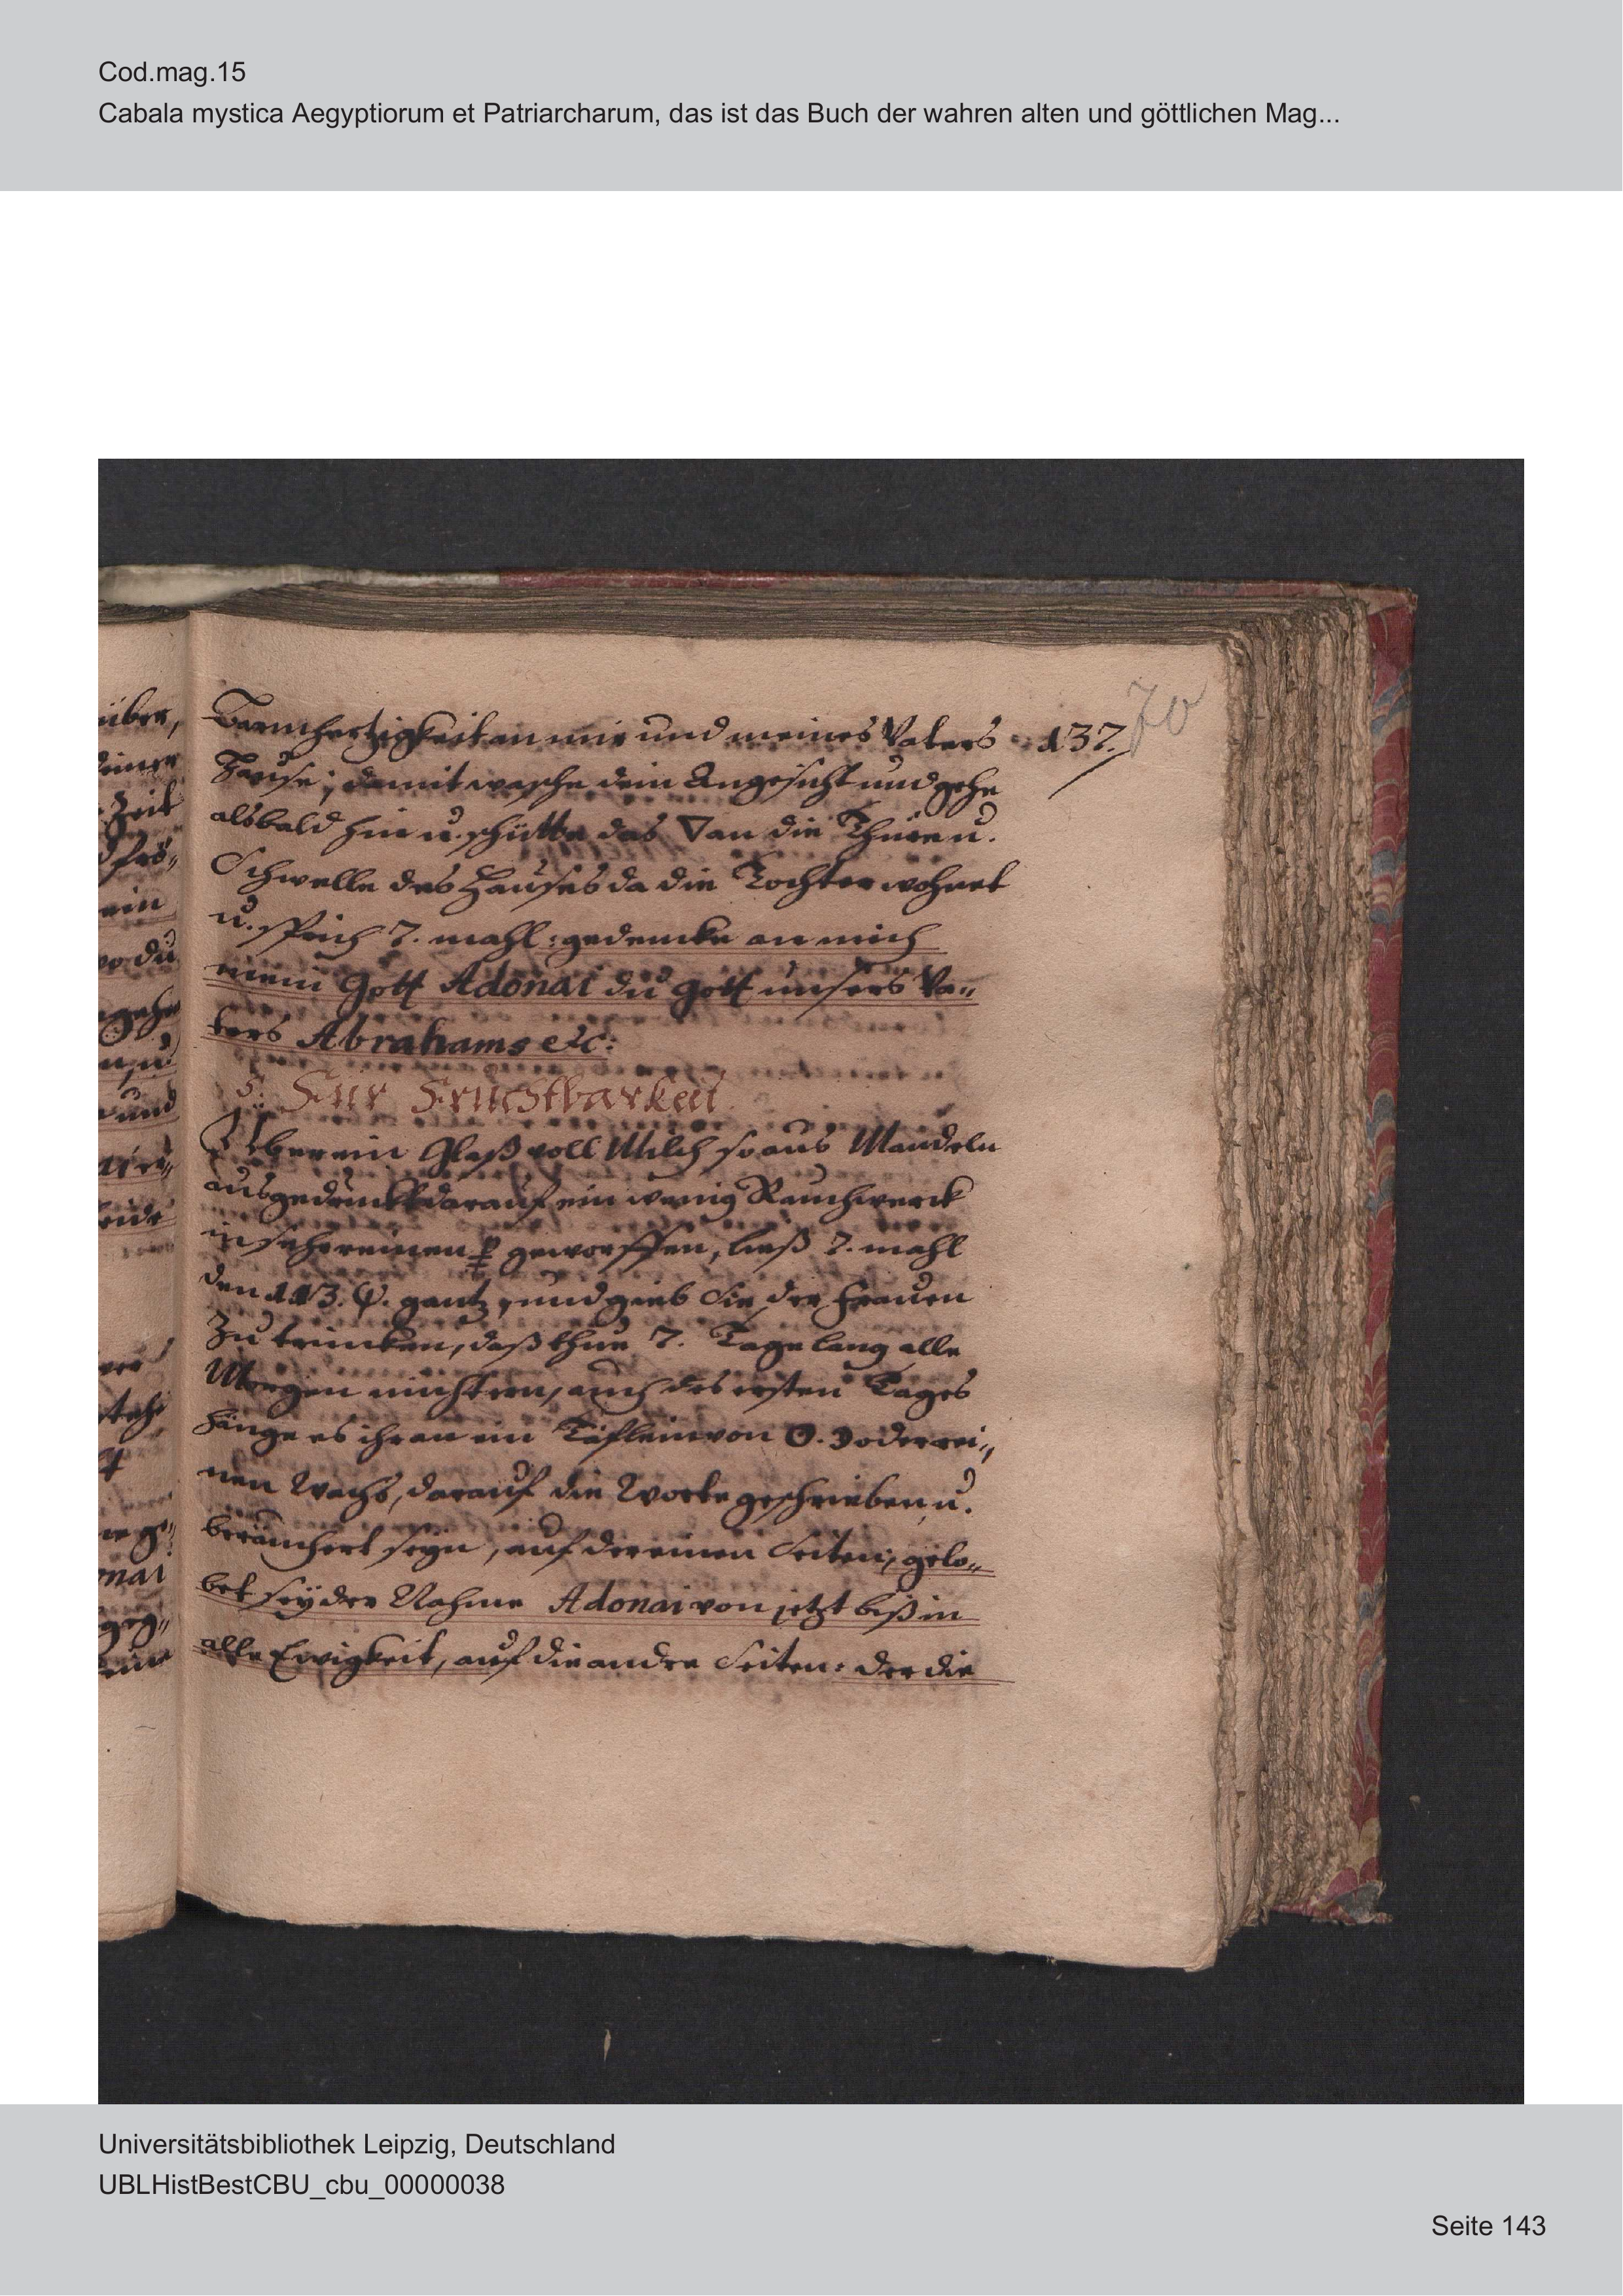 Cod.mag.15
Cabala mystica Aegyptiorum et Patriarcharum, das ist das Buch der wahren alten und göttlichen Mag...
70
137.
Barmhertzigkeit an mir und meines Vaters
Hause; damit wasche dein Angesicht und gehe
alsbald hin u. schütte das ▽ an die Thüre u.
Schwelle des Hauses da die Tochter wohnet
u. sprich 7. mahl: gedencke an mich
mein Gott Adonai du Gott unsers Va„
ters Abrahams etc:
5. Für Fruchtbarkeit
Uber ein Glaß voll Milch so aus Mandeln
ausgedruckt darauf ein wenig Rauchwerck
geworffen, ließ 7. mahl
den 113. ψ. gantz, und gieb Sie der Frauen
Zu trincken, daß thue 7. Tage lang alle
Morgen nüchtern, auch des ersten Tages
hänge es ihr an ein Täflein von ☉. ☽ oder rei„
nen Wachs, darauf die Worte geschrieben u.
beräuchert seyn, auf der einen Seiten, gelo„
bet sey der Nahme Adonai von jetzt biß in
alle Ewigkeit, auf die andre Seiten: der die
Universitätsbibliothek Leipzig, Deutschland
UBLHistBestCBU_cbu_00000038
Seite 143